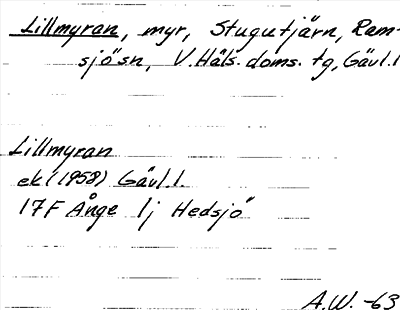 Lillmyran, myr, Stugutjärn, Ram-
sjö sn, V. Häls. doms. tg, Gävl. l
Lillmyran
ek (1958) Gävl. l.
17F Ånge 1j Hedsjö
A.W. -63